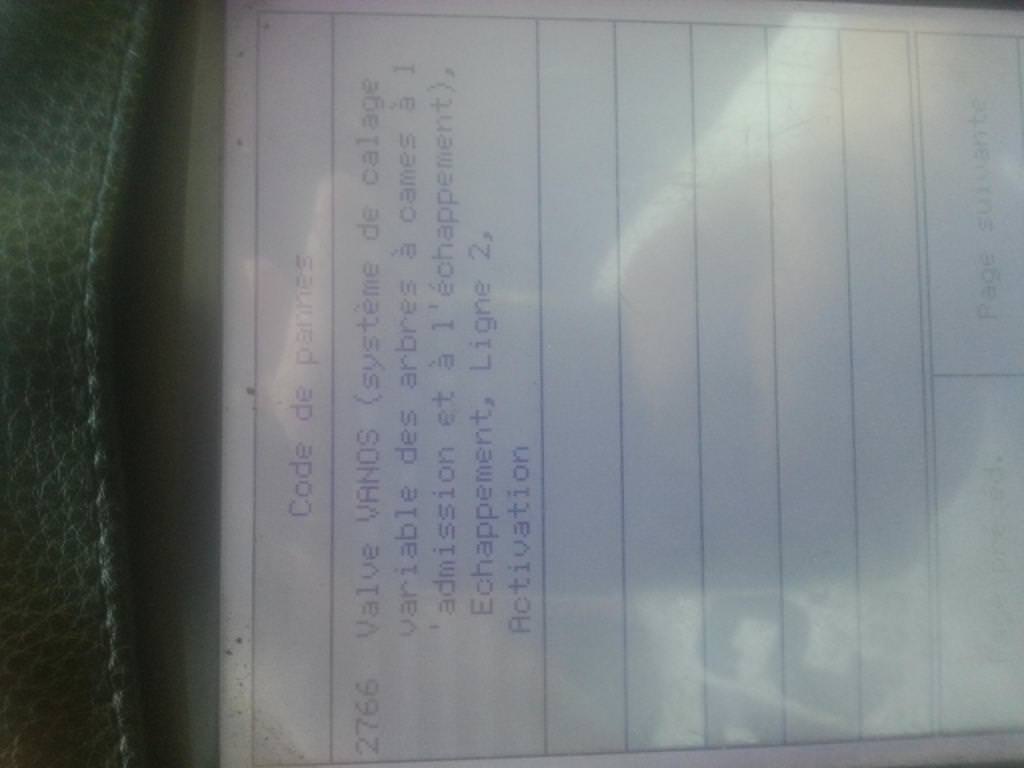 Code de pannes
2766 Valve VANOS (système de calage
variable des arbres à cames à l
'admission et à l'échappement),
Echappement, Ligne 2,
Activation
Page précéd.
Page suivante